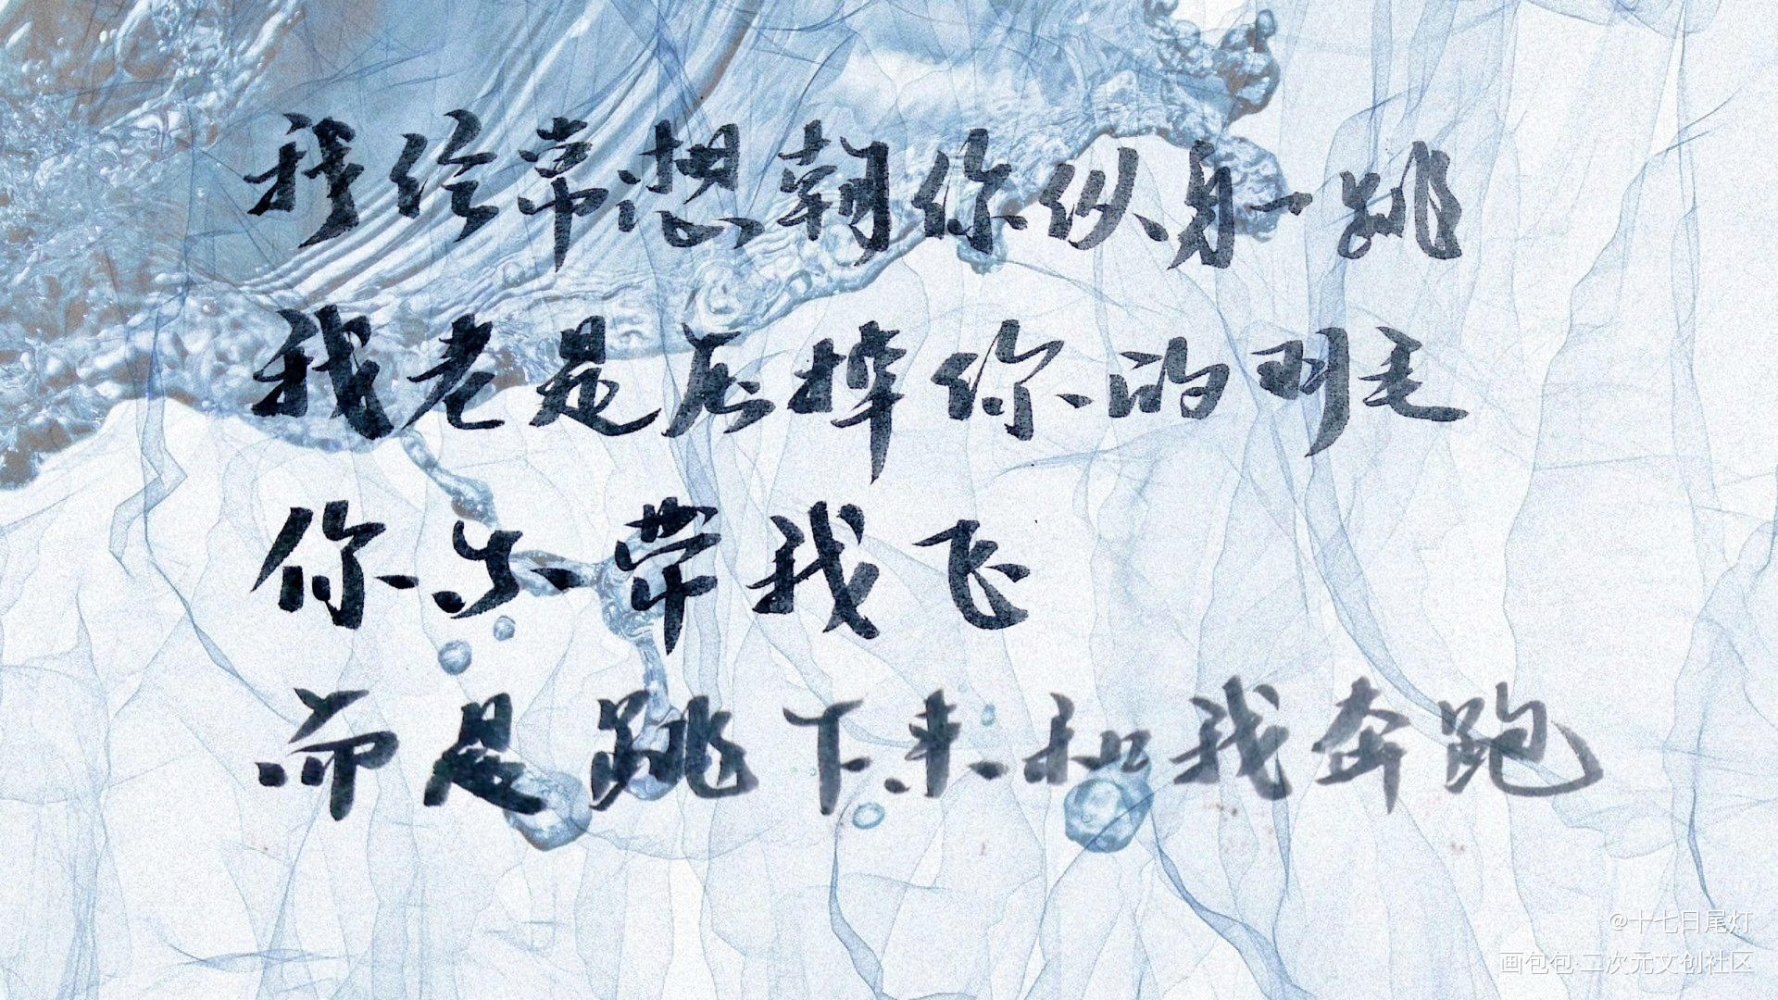 我经常想朝你纵身一跳
我老是压掉你的羽毛
你不带我飞
而是跳下来和我奔跑
@十七日尾灯
画包包·二次元文创社区